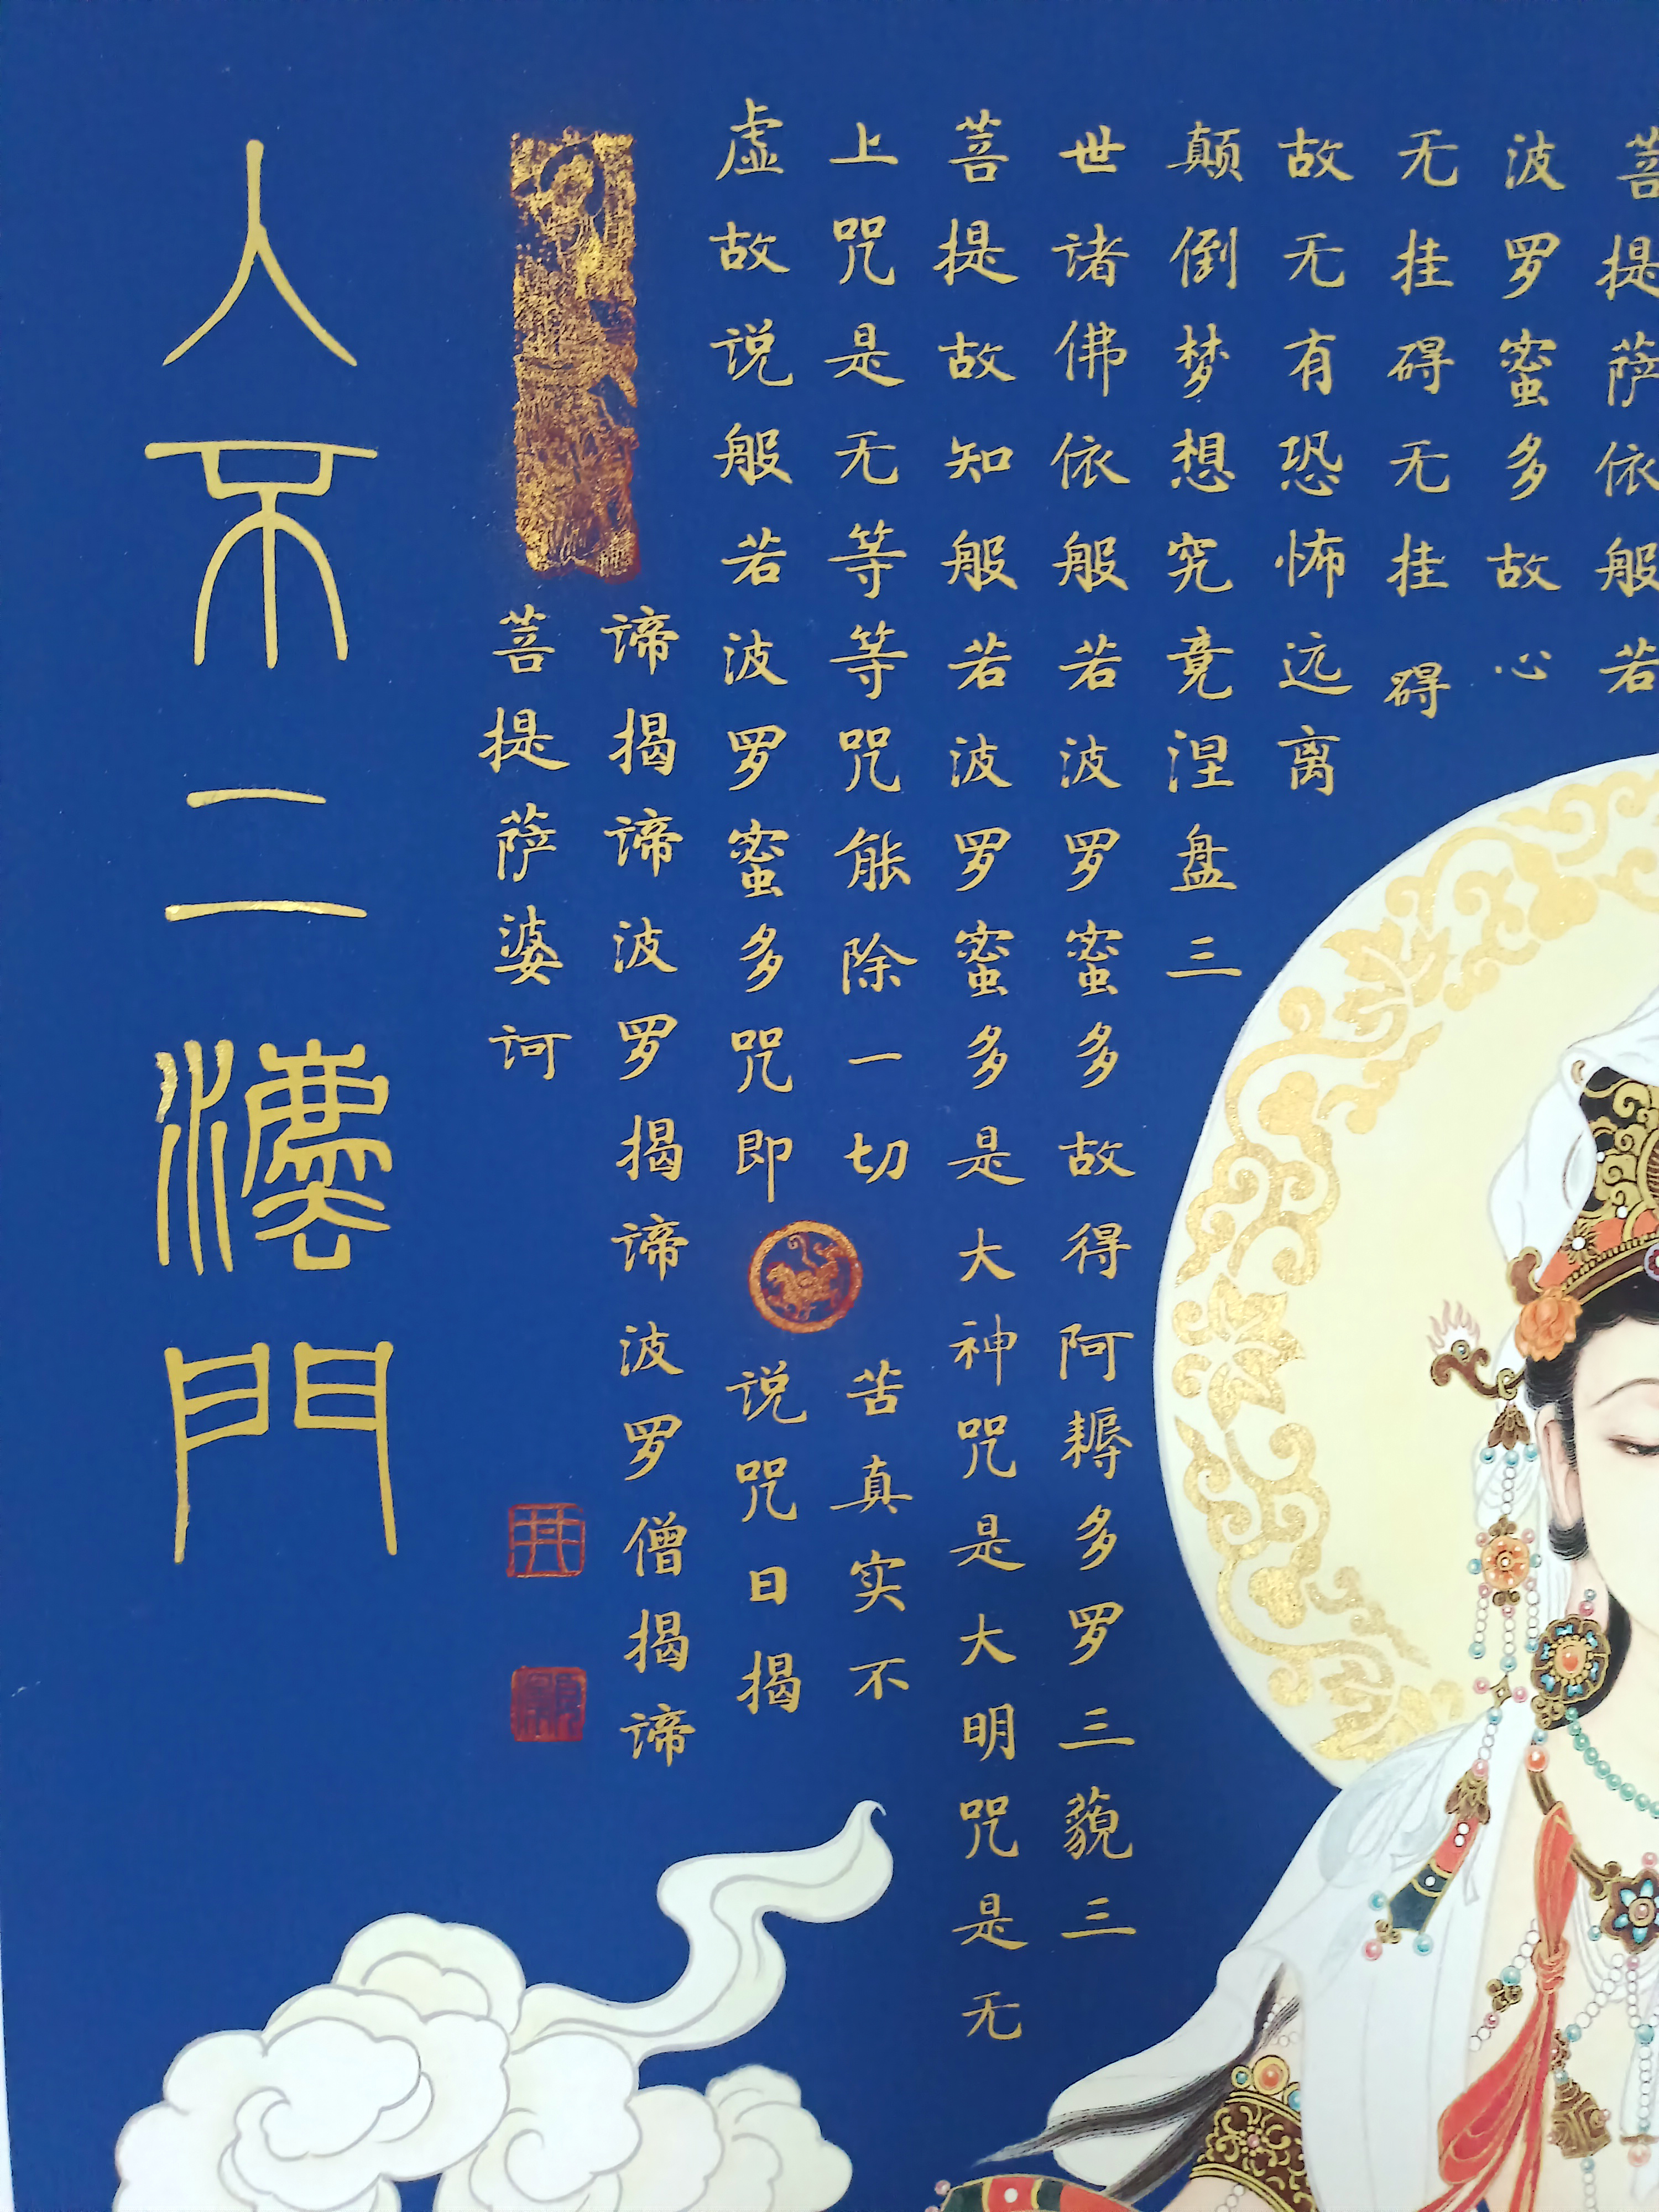 菩提萨依般若
波罗蜜多故心
无挂碍无挂碍
故无有恐怖远离
颠倒梦想究竟涅盘三
世诸佛依般若波罗蜜多故得阿耨多罗三藐三
菩提故知般若波罗蜜多是大神咒是大明咒是无
上咒是无等等咒能除一切苦真实不
虚故说般若波罗蜜多咒即说咒曰揭
谛揭谛波罗揭谛波罗僧揭谛
菩提萨婆诃
入不二灋門